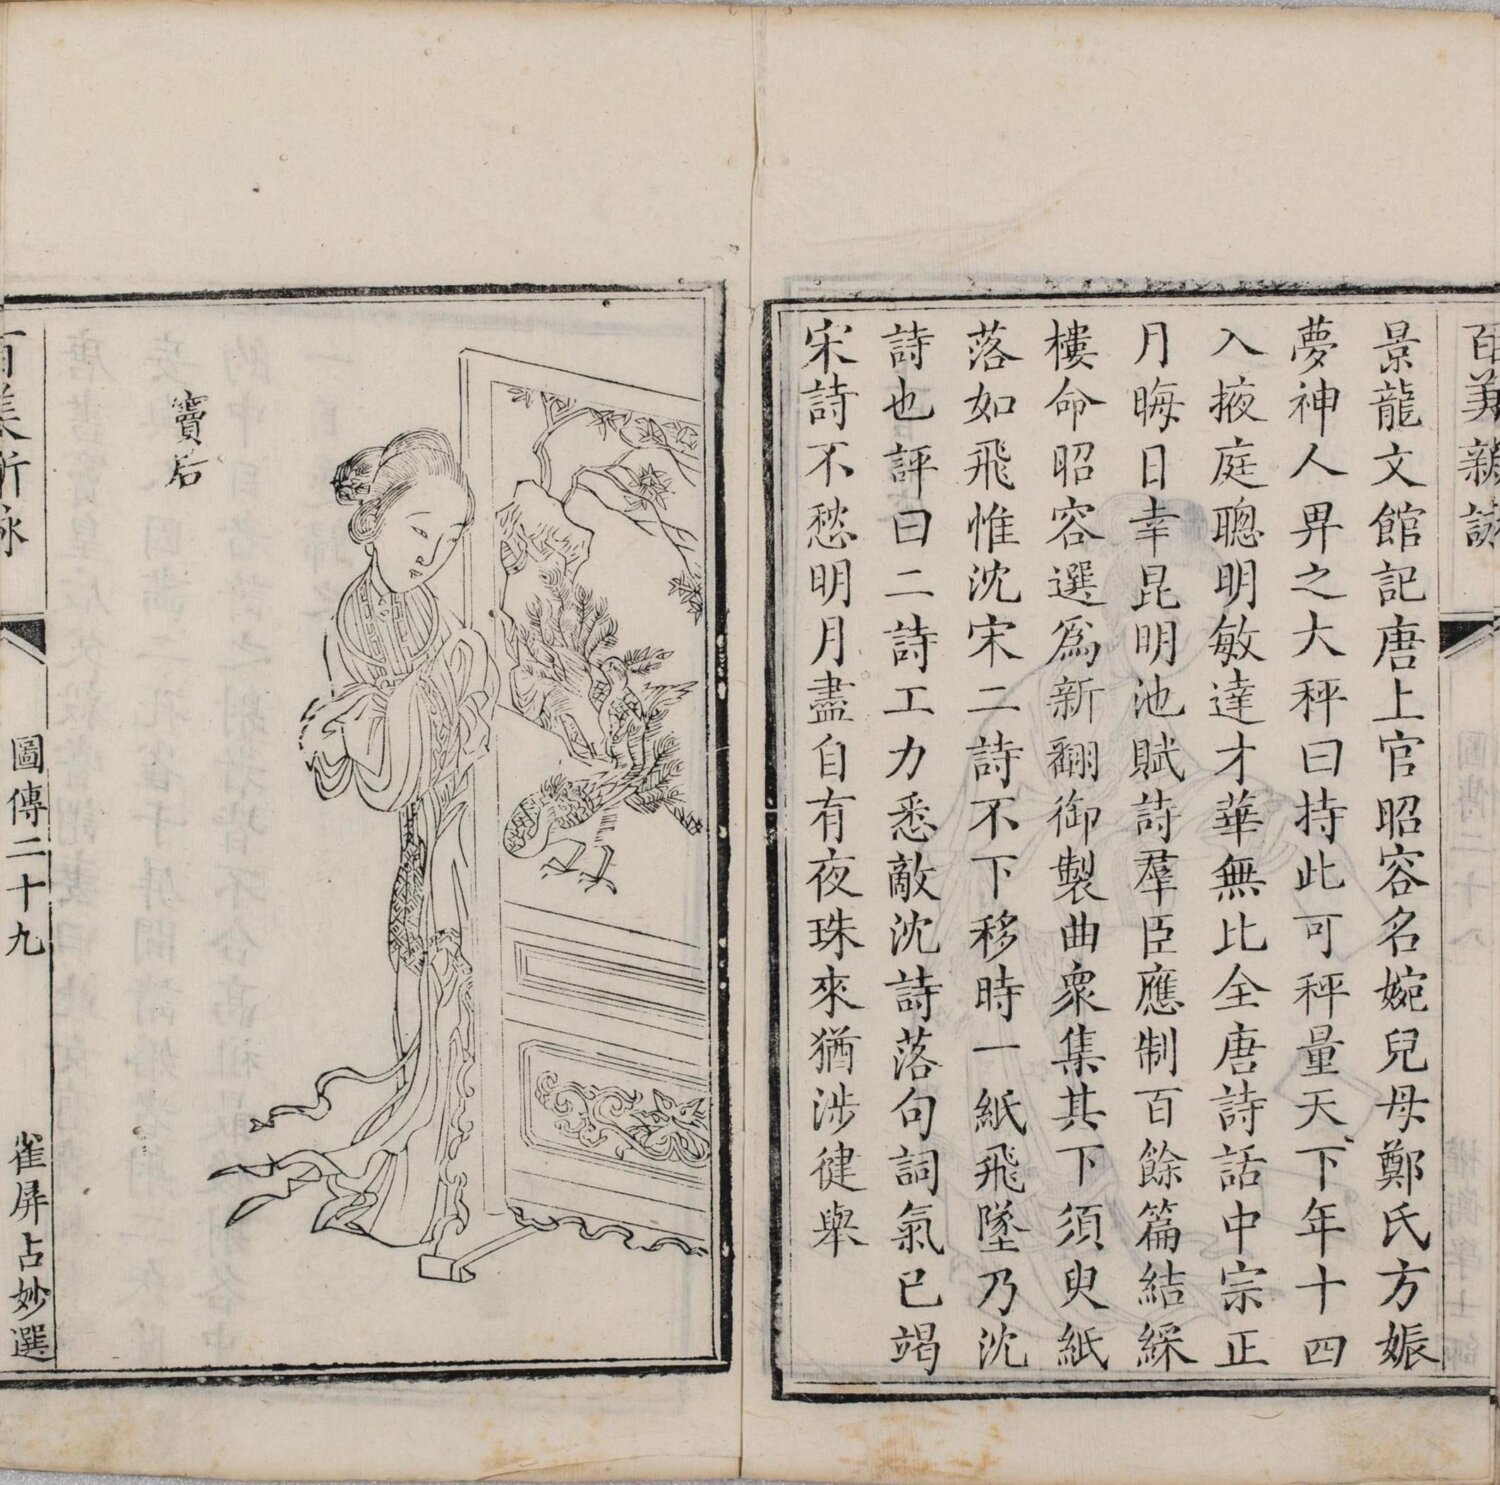 百美新詠
景龍文館記唐上官昭容名婉兒母鄭氏方娠
夢神人畀之大秤曰持此可秤量天下年十四
入掖庭聰明敏達才華無比全唐詩話中宗正
月晦日幸昆明池賦詩羣臣應制百餘篇結綵
樓命昭容選爲新翻御製曲衆集其下須臾紙
落如飛惟沈宋二詩不下移時一紙飛墜乃沈
詩也評曰二詩工力悉敵沈詩落句詞氣已竭
宋詩不愁明月盡自有夜珠來猶涉健舉
竇后
百美新詠
圖傳二十九
雀屏占妙選